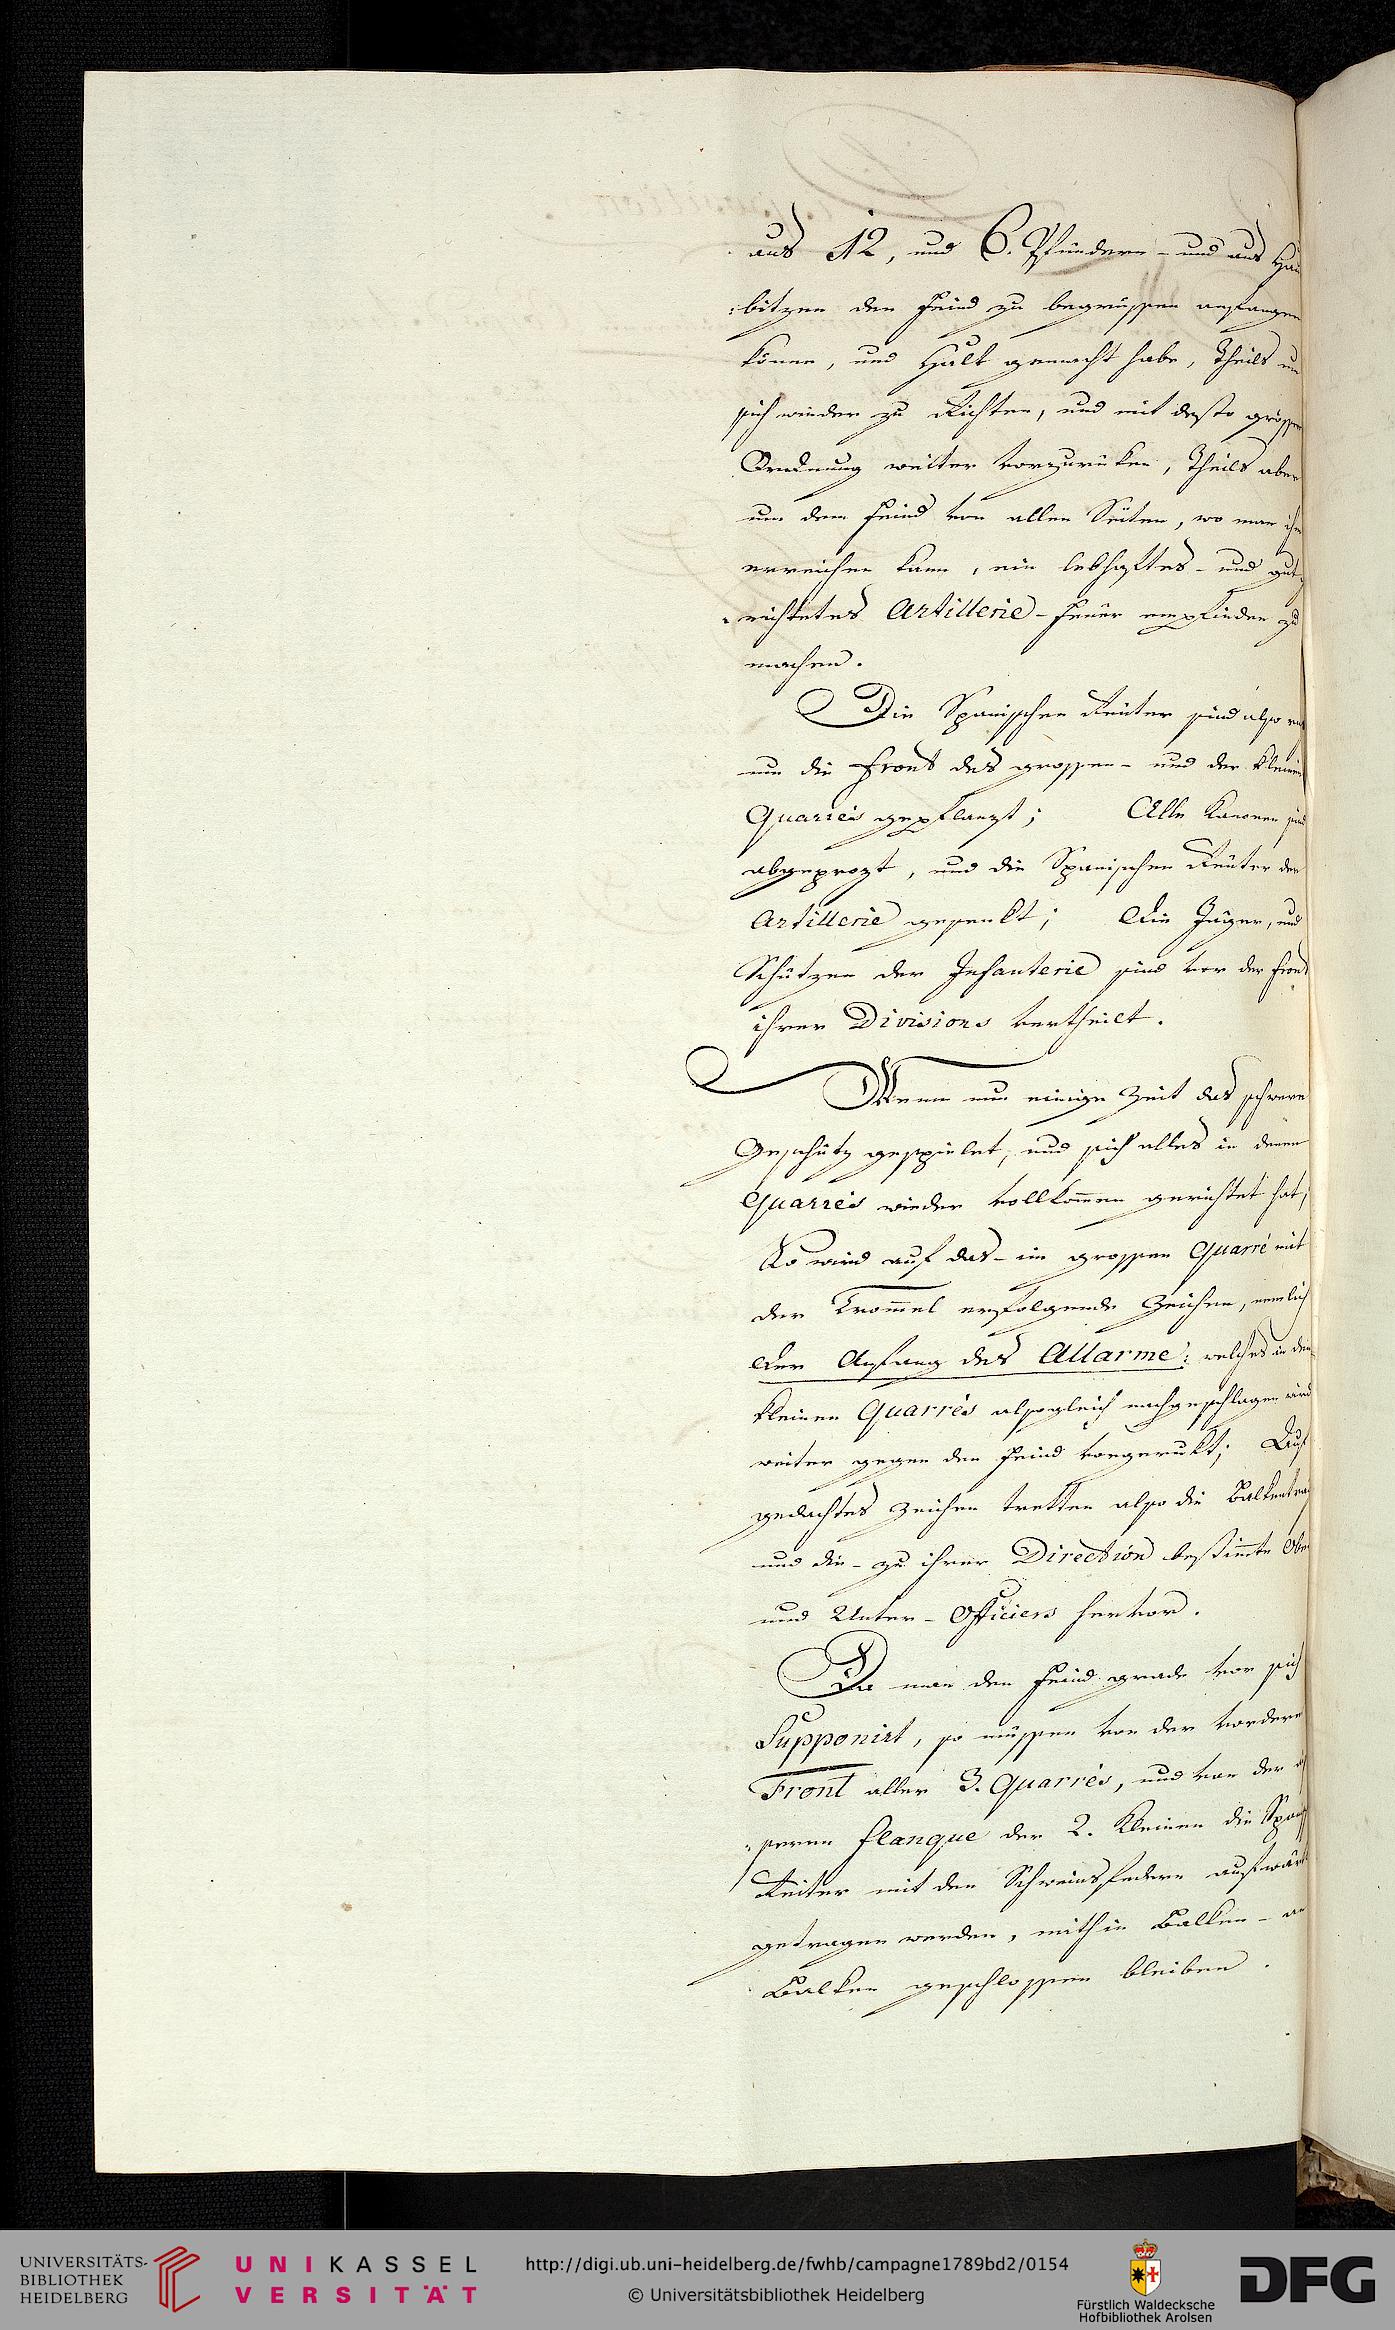 aus 12, und 6. Pfündern - und aus Hau
:bitzen den Feind zu begrüssen anfangen
könne, und Halt gemacht habe, Theils um
sich wieder zu Richten, und mit desto grösser
Ordnung weiter vorzurüken, Theils aber
um dem Feind von allen Seiten, wo man ihn
erreichen kann, ein lebhaftes - und gut
richtetes Artillerie - Feuer empfinden zu
machen.
Die Spanischen Reuter sind also
um die Front des grossen - und der kleinen
Quarrés gepflanzt; Alle Kanonen sind
abgeprozt, und die Spanischen Reuter der
Artillerie gesenkt; Die Jäger, und
Schützen der Infanterie sind vor der Front
ihrer Divisions vertheilt.
Wenn nun einige Zeit das schwere
Geschütz gespielet, und sich alles in denen
Quarrés wieder vollkom̄en gerichtet hat,
So wird auf das - im grossen Quarré mit
der Trom̄el erfolgende Zeichen, nemlich
der Anfang des Allarme: welches in den
kleinen Quarrés alsogleich nachgeschlagen wird
weiter gegen den Feind vorgerukt; Auf
gedachtes Zeichen tretten also die Balkenträ
und die - zu ihrer Direction bestim̄te Ober
und Unter - Officiers hervor.
Da man den Feind grade vor sich
Supponirt, so müssen von der vordern
Front aller 3. Quarrés, und von der
seren Flanque der 2. Kleinen die Span
Reiter mit den Schweinsfedern aufwärts
getragen werden, mithin Balken - an
Balken geschlossen bleiben.
UNIVERSITÄTS-
BIBLIOTHEK
HEIDELBERG
UNIKASSEL
VERSITÄT
http://digi.ub.uni-heidelberg.de/fwhb/campagne1789bd2/0154
© Universitätsbibliothek Heidelberg
Fürstlich Waldecksche
Hofbibliothek Arolsen
DFG